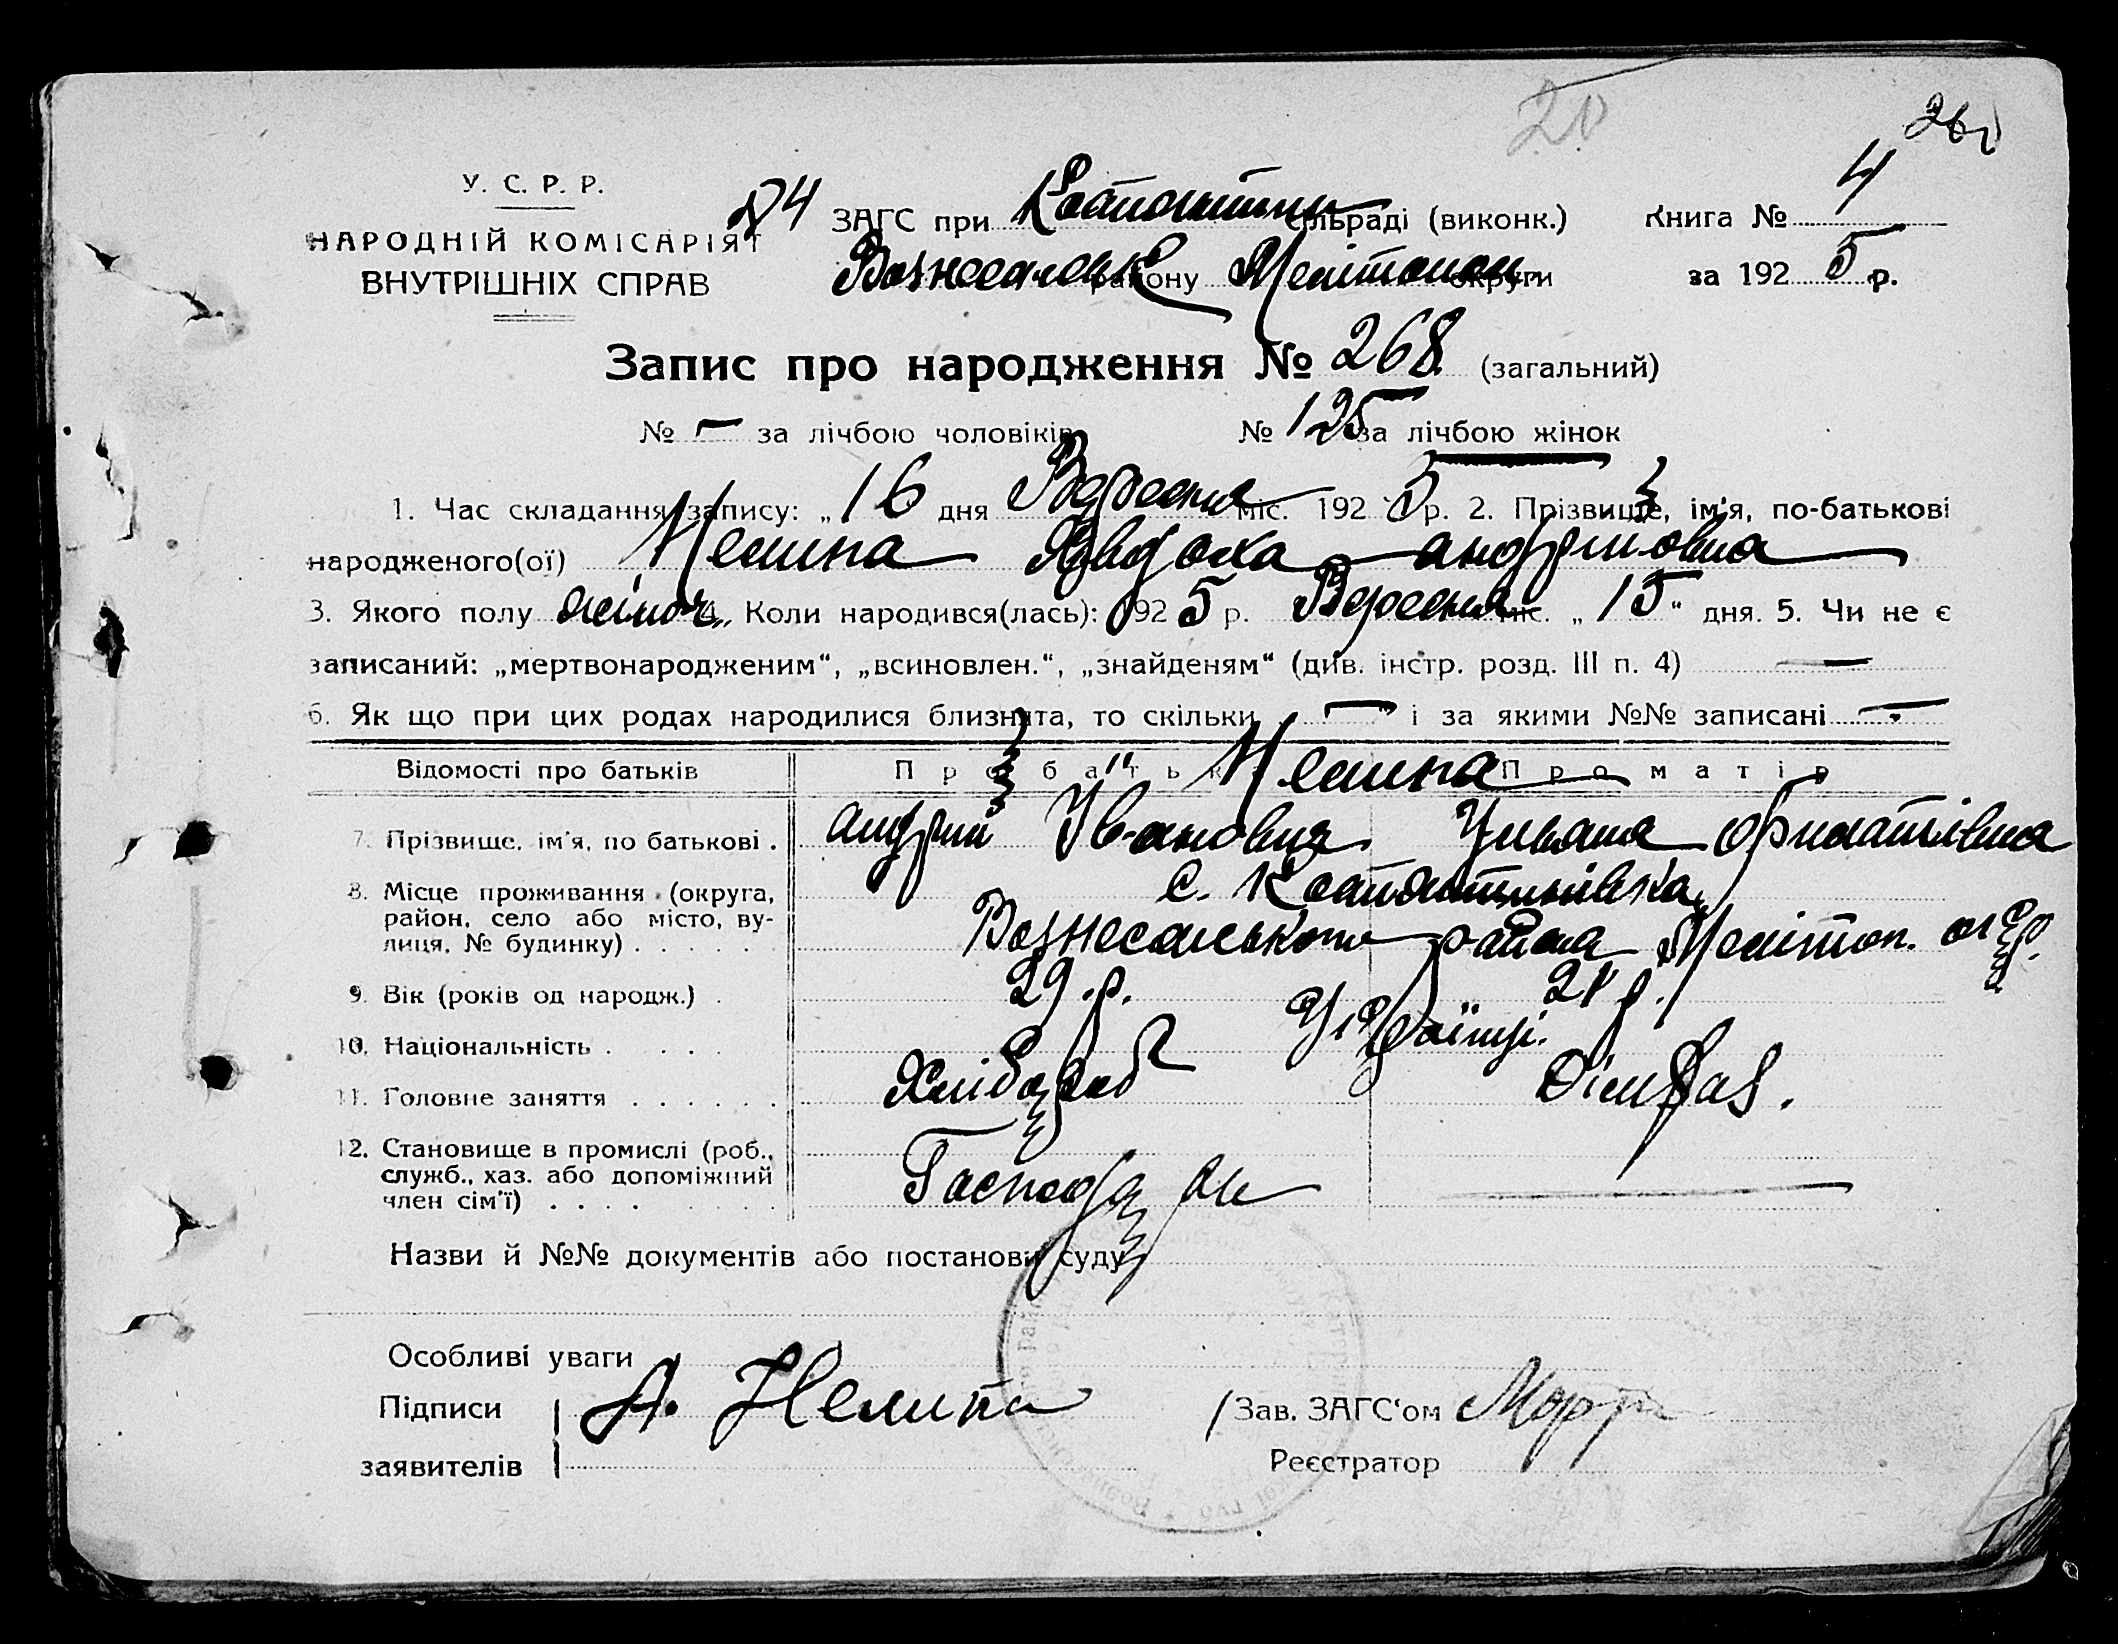 20
У. С. Р. Р.
НАРОДНІЙ КОМІСАРІЯТ
ВНУТРІШНІХ СПРАВ
ЗАГС при Костянтин сільраді (виконк.) Книга № 4
Вознесенськ району Мелітопол. округи за 1925 р.
Запис про народження № 268 (загальний)
№ — за лічбою чоловіків № 125 за лічбою жінок
1. Час складання запису: „16 дня Вересня міс. 1925 р. 2. Прізвище, ім'я, по-батькові
народженого(ої) Нелипа Явдоха Андриїовна
3. Якого полу жіноч. 4. Коли народився(лась): 1925 р. Вересня міс. „15“ дня. 5. Чи не є
записаний: „мертвонародженим“, „всиновлен.“, „знайденям“ (див. інстр. розд. III п. 4) —
6. Як що при цих родах народилися близнята, то скільки „—“ і за якими №№ записані —
Відомості про батьків Про батька Про матір
Нелипа
7. Прізвище, ім'я, по батькові . Андрий Іванович Уляна
8. Місце проживання (округа, район, село або місто, вулиця, № будинку) . . . . . с. Костянтинівка
Вознесенського района Мелітоп. окр.
9. Вік (років од народж.) . 29 р. 28 р.
10. Національність . . . . Українці.
11. Головне заняття . . . . . . Хлібороб
12. Становище в промислі (роб., служб., хаз. або допоміжний член сім'ї) . . . . Господар —
Назви й №№ документів або постанови суду
Особливі уваги
Підписи А. Нелипа Зав. ЗАГС'ом
заявителів Реєстратор